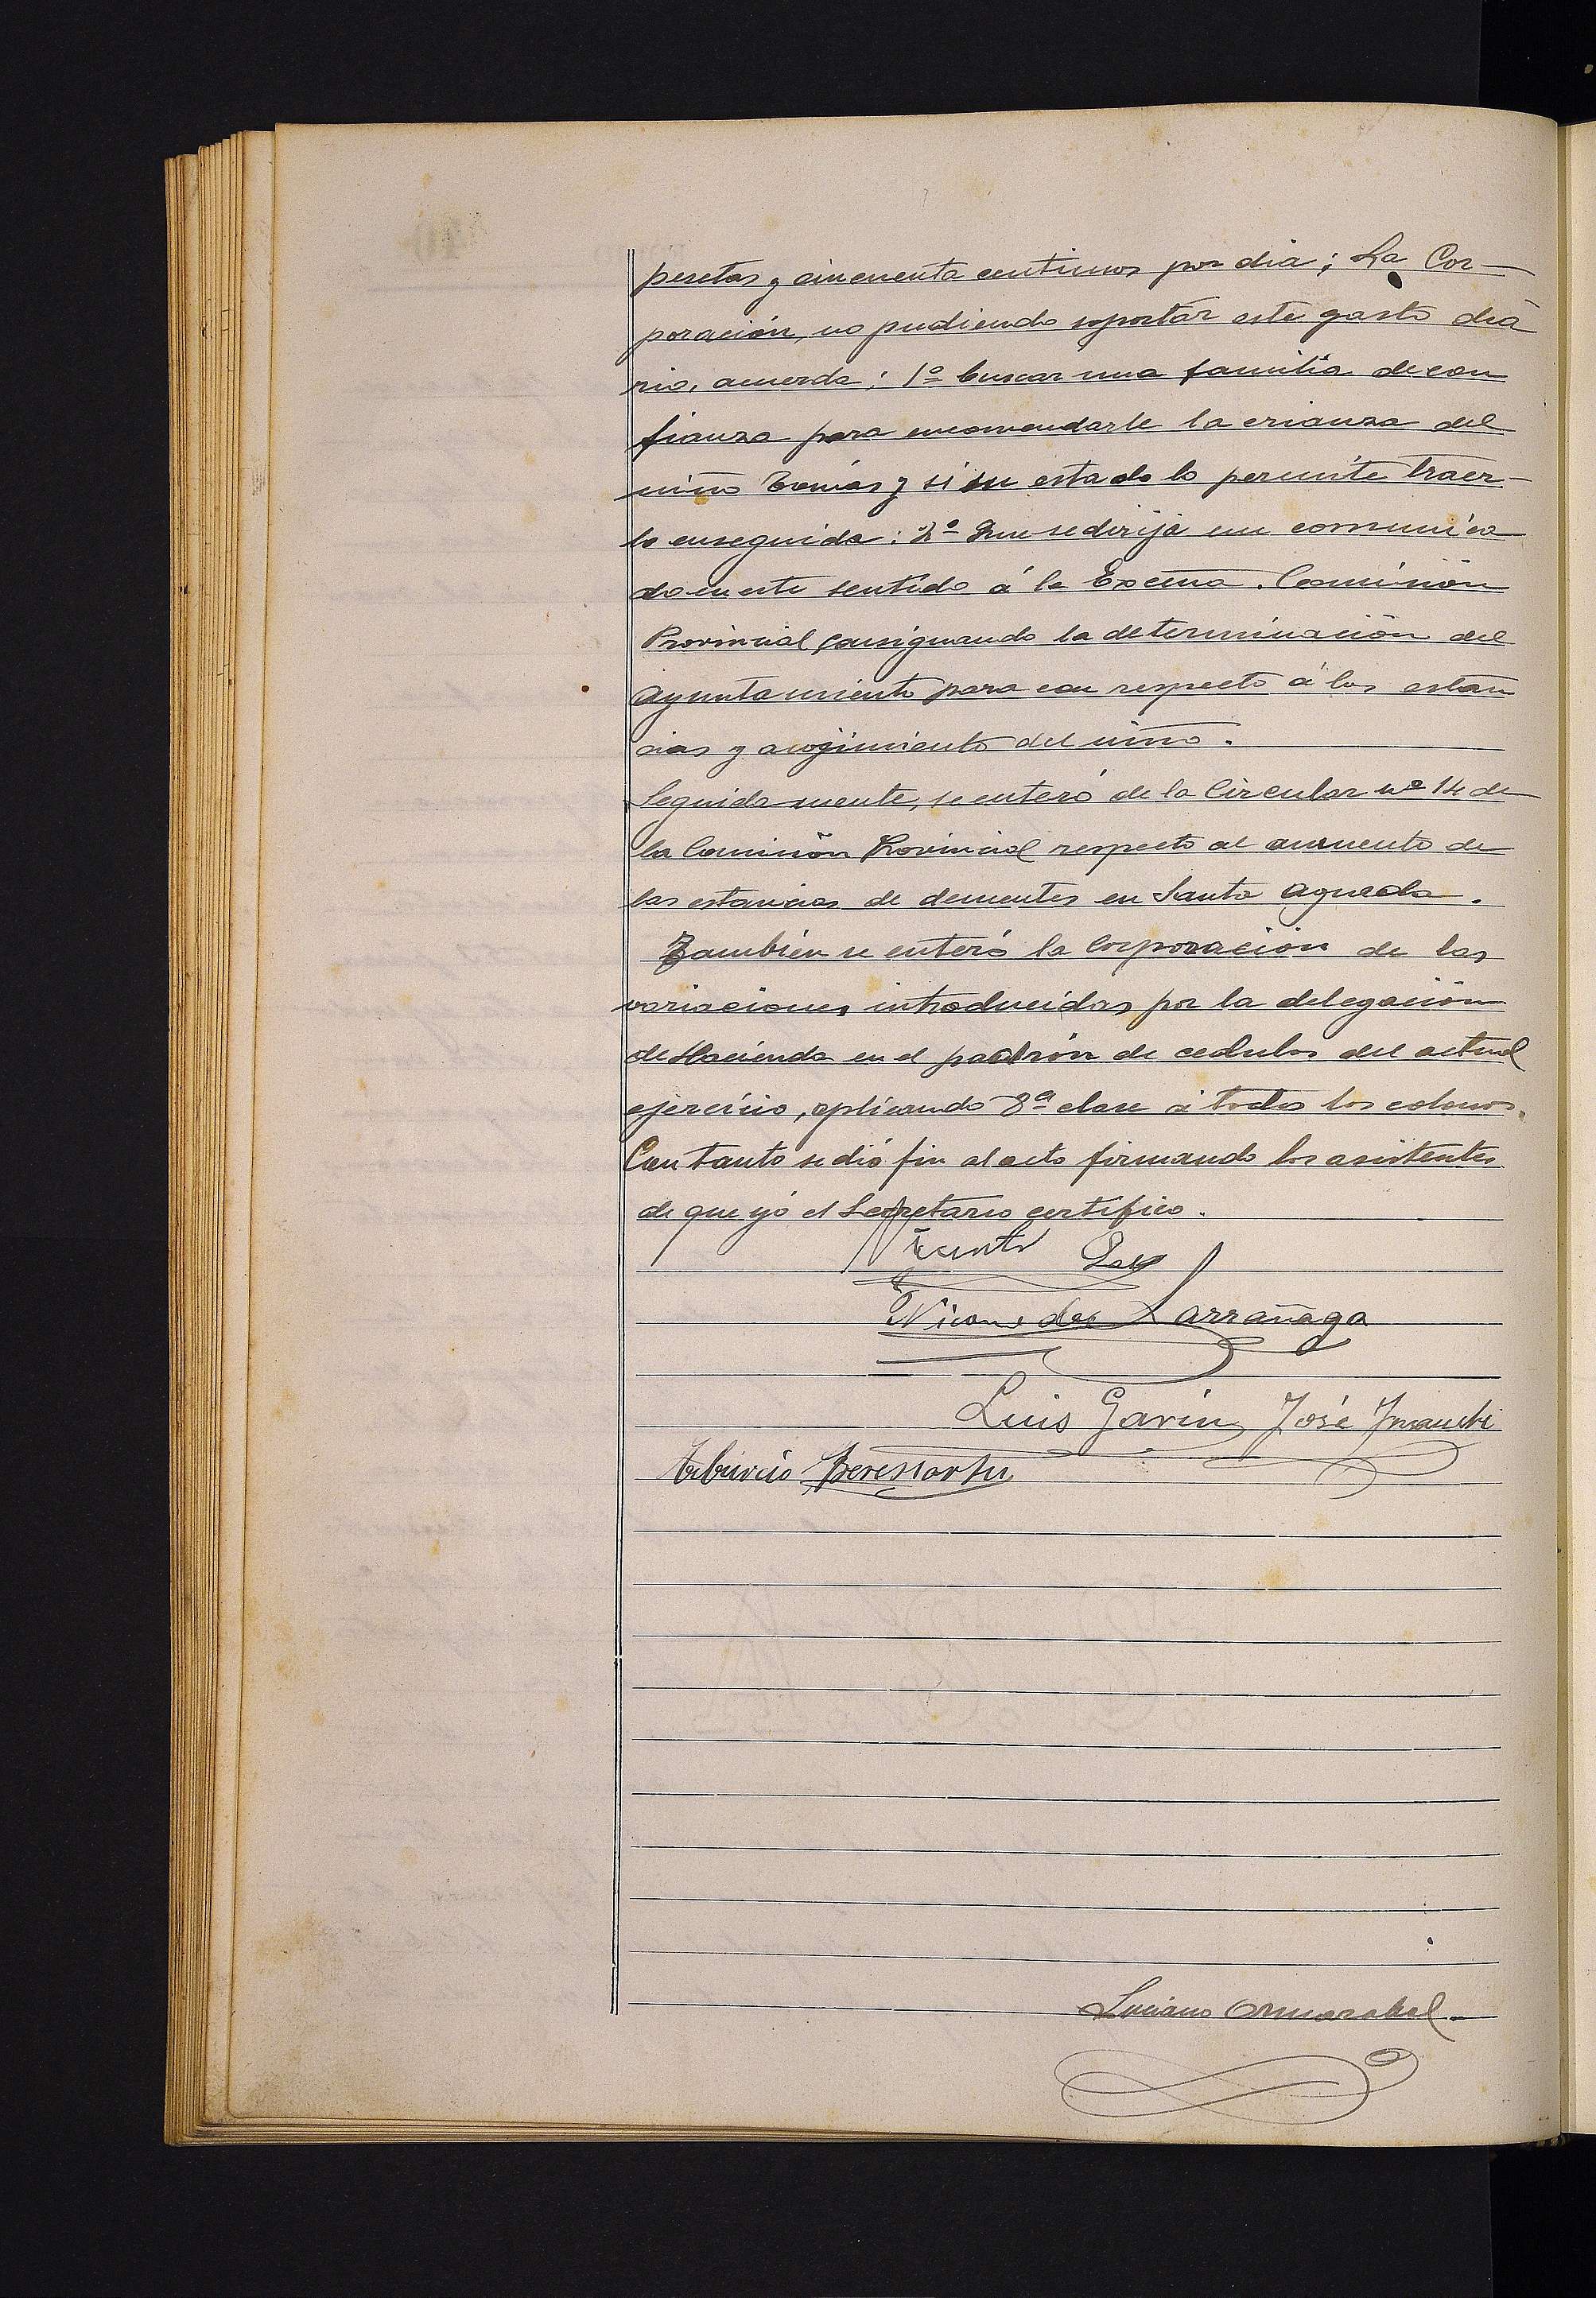 pesetas y cincuenta centimos por dia; La Cor-
poración, no pudiendo soportar este gasto dia
rio, acuerda: 1º buscar una familia de con
fianza para encomendarle la crianza del
niño Tomás y si su estado lo permite traer-
lo enseguida: 2º Que se dirija un comunica
do en este sentido á la Excma. Comisión
Provincial consignando la determinación del
Ayuntamiento para con respecto á las estan
cias y acogimiento del niño.
Seguidamente, se enteró de la Circular nº 14 de
la Comisión Provincial respecto al aumento de
las estancias de dementes en Santa Agueda.
También se enteró la Corporación de las
variaciones introducidas por la delegación
de Hacienda en el padrón de cedulas del actual
ejercicio, aplicando 8ª clase á todos los colonos.
Con tanto se dió fin al acto firmando los asistentes
de que yó el Secretario certifico.
Vicente
Nicomedes Larrañaga
Luis Garin José
Tiburcio Beristartu
Luciano Ormazabal